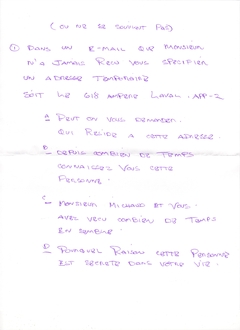 (OU NE SE SOUVIENT PAS)
① DANS UN E-MAIL QUE MONSIEUR
N'A JAMAIS REÇU VOUS SPÉCIFIER
UN ADRESSE TEMPORAIRE
SOIT LE 618 AMPERE LAVAL. APP-2
A PEUT ON VOUS DEMANDER.
QUI RÉSIDE A CETTE ADRESSE.
B
DEPUIS COMBIEN DE TEMPS
CONNAISSEZ VOUS CETTE
PERSONNE.
C
MONSIEUR MICHAUD ET VOUS.
AVEZ VÉCU COMBIEN DE TEMPS
ENSEMBLE.
D POURQUEL RAISON CETTE PERSONNE
EST SECRETE DANS VOTRE VIE.